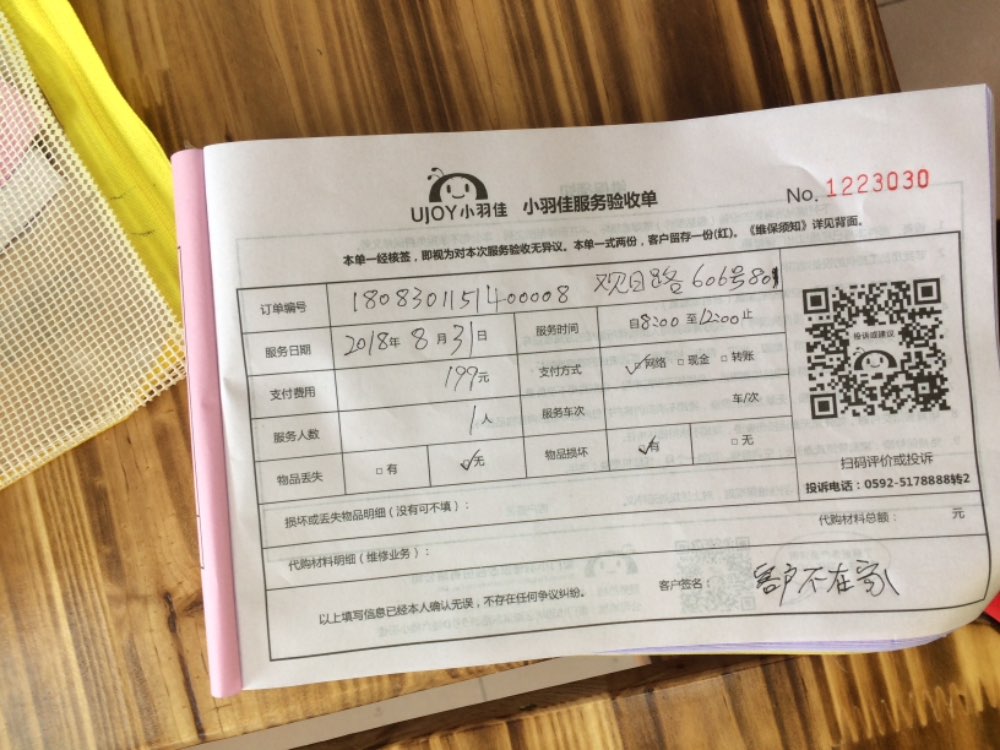 UJOY小羽佳 小羽佳服务验收单 No. 1223030
本单一经核签，即视为对本次服务验收无异议。本单一式两份，客户留存一份(红)。《维保须知》详见背面。
订单编号 1808301151400008 观日路606号801
服务日期 2018年 8月31日 服务时间 自8:00至12:00止
支付费用 199元 支付方式 ☑网络 □现金 □转账
服务人数 1人 服务车次 车/次
物品丢失 □有 ☑无 物品损坏 ☑有 □无
投诉或建议
扫码评价或投诉
投诉电话：0592-5178888转2
损坏或丢失物品明细（没有可不填）：
代购材料明细（维修业务）： 代购材料总额： 元
以上填写信息已经本人确认无误，不存在任何争议纠纷。 客户签名： 客户不在家